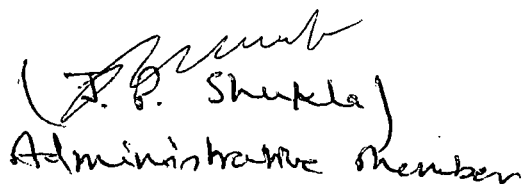 (J. P. Shukla)
Administrative Member